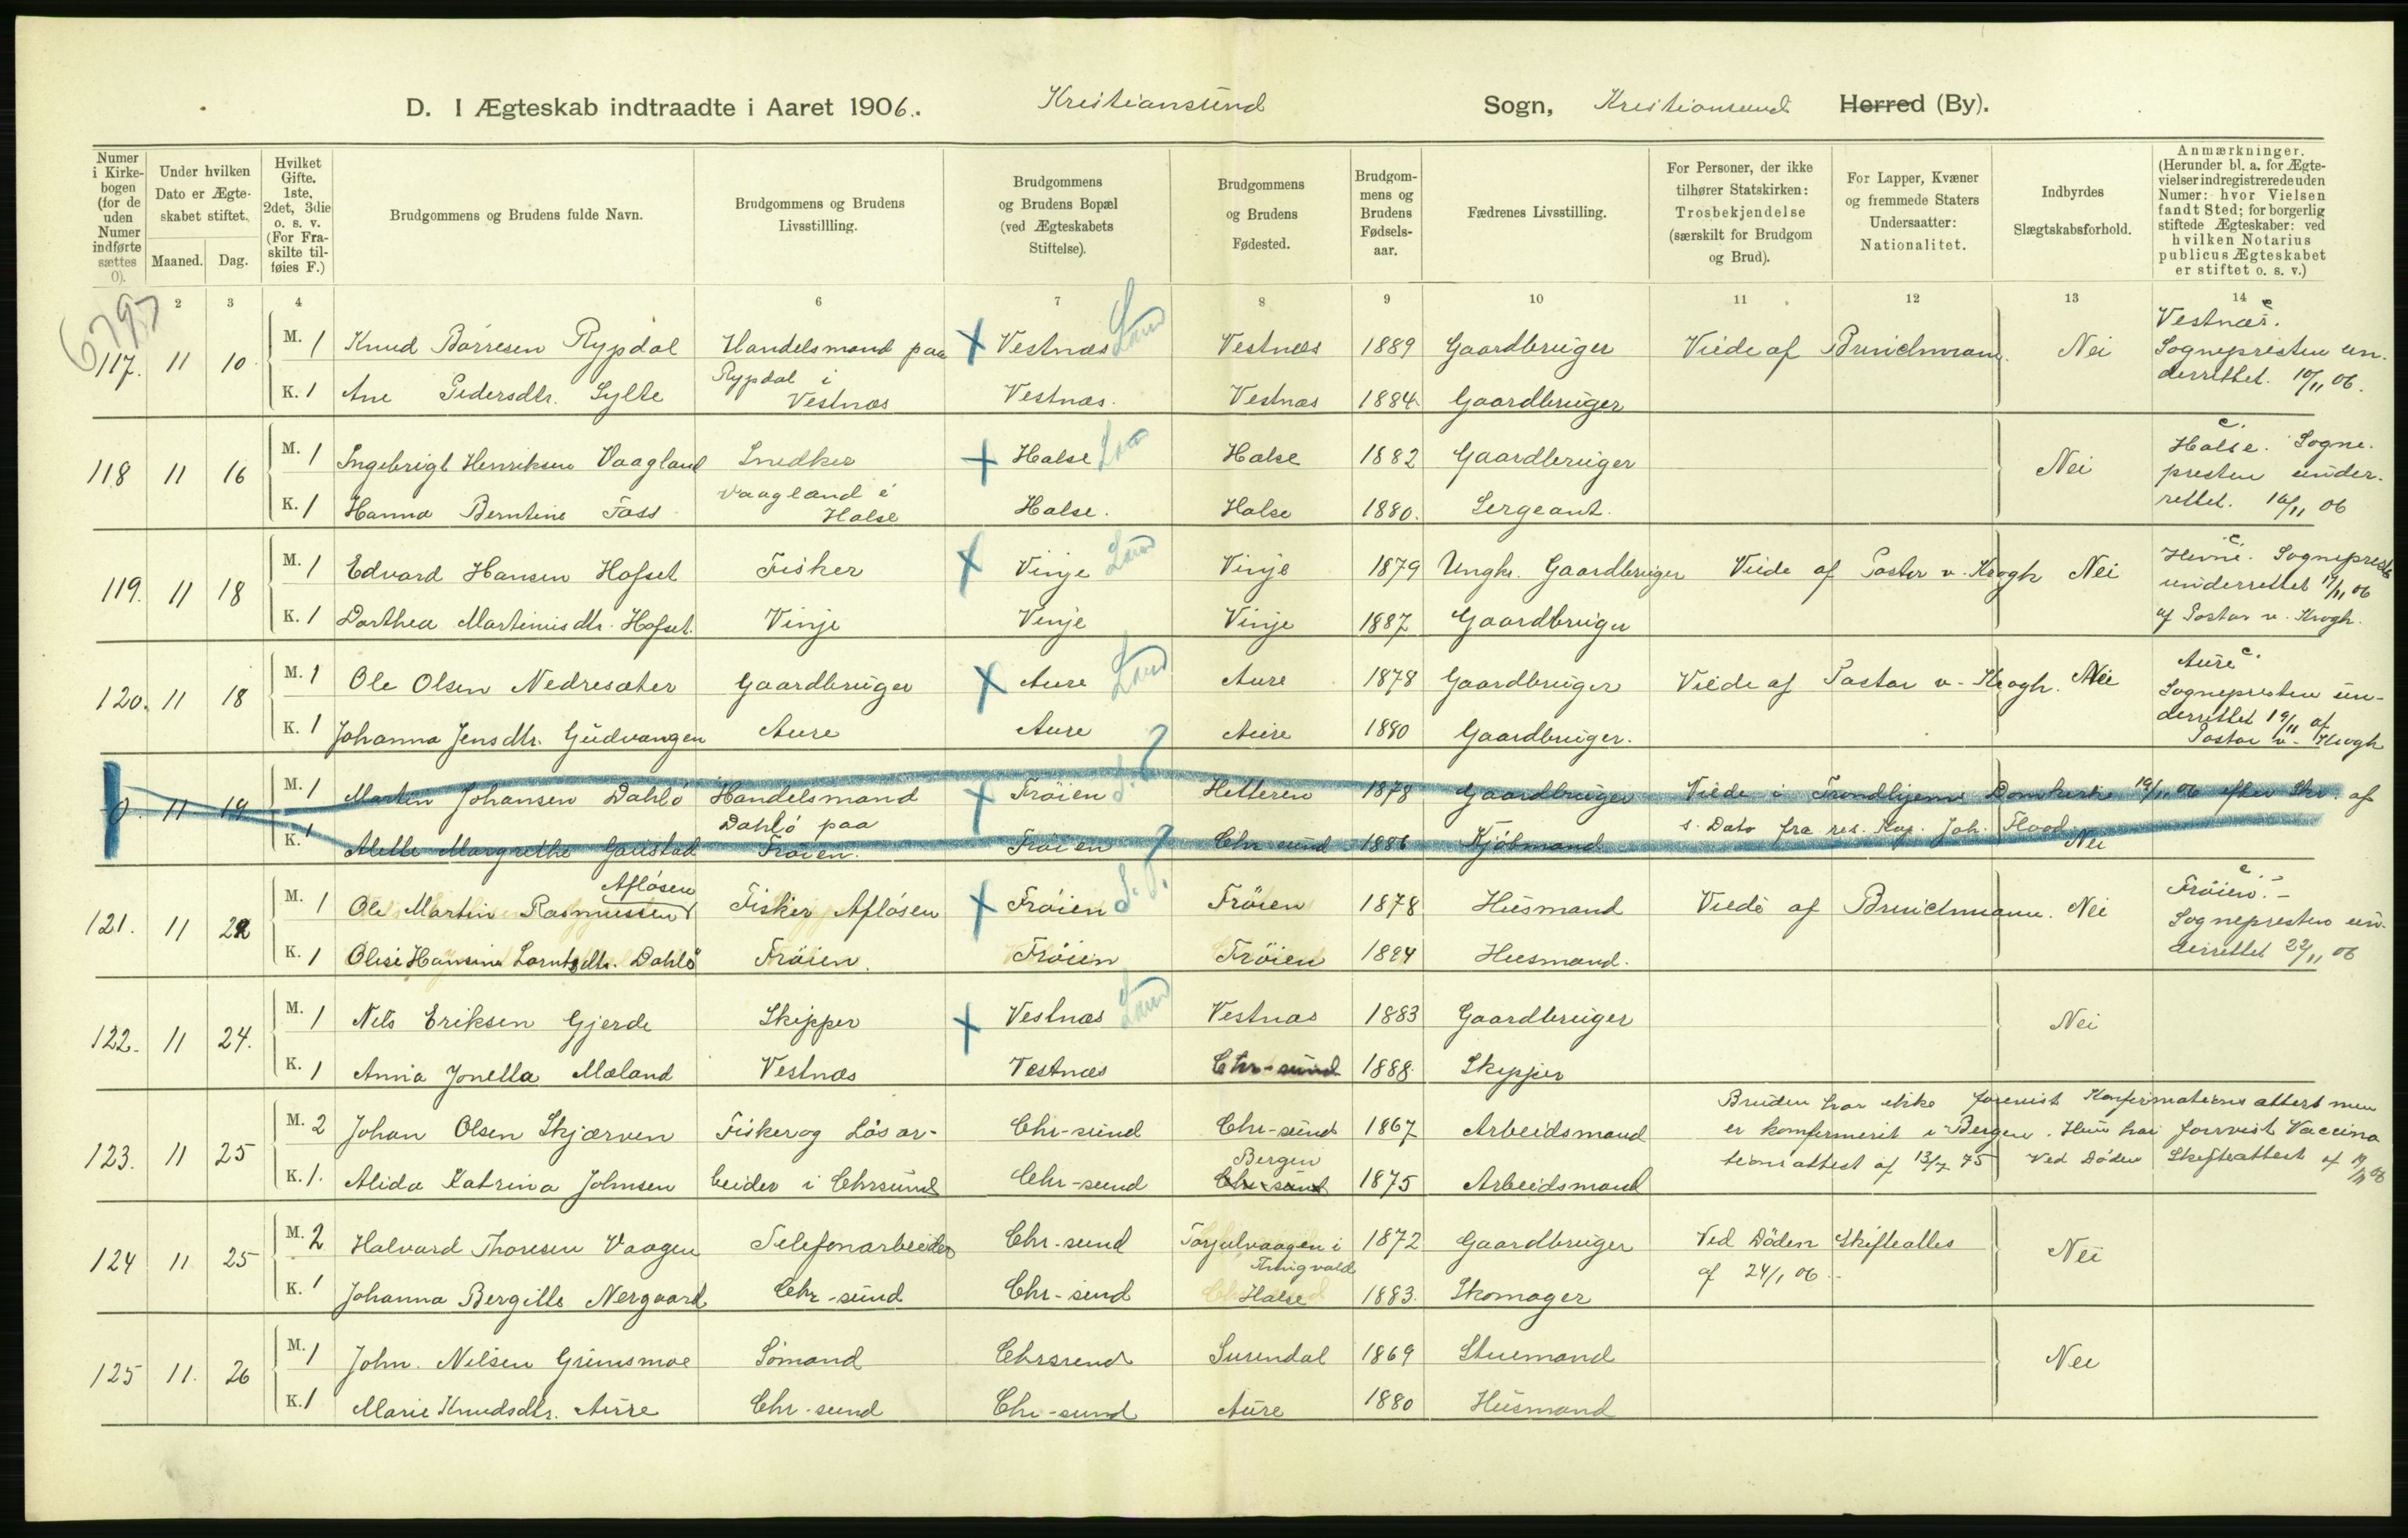 D. I Ægteskab indtraadte i Aaret 1906. Kristiansund Sogn, Kristiansund Herred (By).
Numer i Kirkebogen (for de uden Numer indførte sættes 0).
Under hvilken Dato er Ægteskabet stiftet.
Maaned. Dag.
Hvilket Gifte. 1ste, 2det, 3die o. s. v. (For Fraskilte tilføies F.)
Brudgommens og Brudens fulde Navn.
Brudgommens og Brudens Livsstillling.
Brudgommens og Brudens Bopæl (ved Ægteskabets Stiftelse).
Brudgommens og Brudens Fødested.
Brudgommens og Brudens Fødselsaar.
Fædrenes Livsstilling.
For Personer, der ikke tilhører Statskirken: Trosbekjendelse (særskilt for Brudgom og Brud).
For Lapper, Kvæner og fremmede Staters Undersaatter: Nationalitet.
Indbyrdes Slægtskabsforhold.
Anmærkninger. (Herunder bl. a. for Ægtevielser indregistrerede uden Numer: hvor Vielsen fandt Sted; for borgerlig stiftede Ægteskaber: ved hvilken Notarius publicus Ægteskabet er stiftet o. s. v.)
6797
2 3 4 6 7 8 9 10 11 12 13 14
117. 11 10 M. 1 Knud Børresen Rypdal Handelsmand paa Vestnæs Land Vestnæs 1889 Gaardbruger Viede af Bruichmann. Nei Vestnæs. Sognepresten underrettet. 10/11 06.
K. 1 Ane Pedersdtr. Sylte Rypdal i Vestnæs Vestnæs. Vestnæs 1884 Gaardbruger
118 11 16 M. 1 Ingebrigt Henriksen Vaagland Snedker Halse Land Halse 1882 Gaardbruger Nei Halse. Sognepresten underrettet. 16/11 06
K. 1 Hanna Berntine Foss Vaagland i Halse Halse. Halse 1880. Sergeant.
119. 11 18 M. 1 Edvard Hansen Hofset Fisker Vinje Land Vinje 1879 Ungk. Gaardbruger Viede af Pastor v. Krogh Nei Hevne. Sognepresten underrettet 19/11 06 af Pastor v. Krogh.
K. 1 Dorthea Martinusdtr. Hofset. Vinje Vinje Vinje 1887 Gaardbruger
120. 11 18 M. 1 Ole Olsen Nedresæter Gaardbruger Aure Land Aure 1878 Gaardbruger Viede af Pastor v. Krogh. Nei Aure Sognepresten underrettet 19/11 af Pastor v. Krogh
K. 1 Johanna Jensdtr. Gudvangen Aure Aure Aure 1880 Gaardbruger.
0. 11 19 M. 1 Martin Johansen Dahlø Handelsmand Frøien S. T. Hitteren 1878 Gaardbruger Viede i Trondhjems Domkirke 19/11 06 efter Skr. af
K. 1 Mette Margrethe Gaustad Dahlø paa Frøien. Frøien Chr sund 1886 Kjøbmand s. Dato fra res. Kap. Joh. Flood. Nei
121. 11 22 M. 1 Ole Martin Rasmussen Afløsen Fisker Afløsen Frøien S. T. Frøien 1878 Husmand Viede af Bruichmann. Nei Frøien. Sognepresten underrettet 22/11 06
K. 1 Olise Hansine Lorntsdtr. Dahlø Frøien. Frøien Frøien 1884 Husmand.
122. 11 24. M. 1 Nels Eriksen Gjerde Skipper Vestnæs Land Vestnæs 1883 Gaardbruger Nei
K. 1 Anna Jonella Mæland Vestnæs Vestnæs Chr-sund 1888 Skipper
123. 11 25 M. 2 Johan Olsen Skjærven Fisker og Løsar- Chr-sund Chr-sund 1867 Arbeidsmand Bruden har ikke forevist Konfirmationsattest men er konfirmerit i Bergen. Hun har forevist Vaccinationsattest af 13/7 75 Ved Døden Skifteattest af
K. 1. Alida Katrina Johnsen beider i Chrsund Chr-sund Bergen Chr-sund 1875 Arbeidsmand
124 11 25 M. 2 Halvard Thoresen Vaagen Telefonarbeider Chr-sund Torjulvaagen i Thingvold 1872 Gaardbruger Ved Døden Skifteattes af 24/1 06. Nei
K. 1 Johanna Bergitte Nergaard Chr-sund Chr-sund Halse 1883. Skomager
125 11. 26 M. 1 John. Nilsen Grimsmoe Sømand Chrsund Surendal 1869 Stuemand Nei
K. 1 Marie Knudsdtr. Aure Chr-sund Chr-sund Aure 1880 Husmand